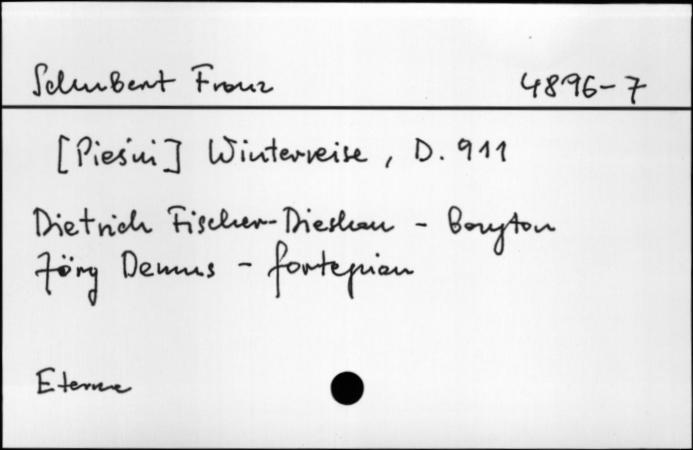 Schubert Franz 4896-7
[Pieśni] Winterreise, D. 911
Dietrich Fischer-Dieskau - baryton
Jörg Demus - fortepian
Eterna